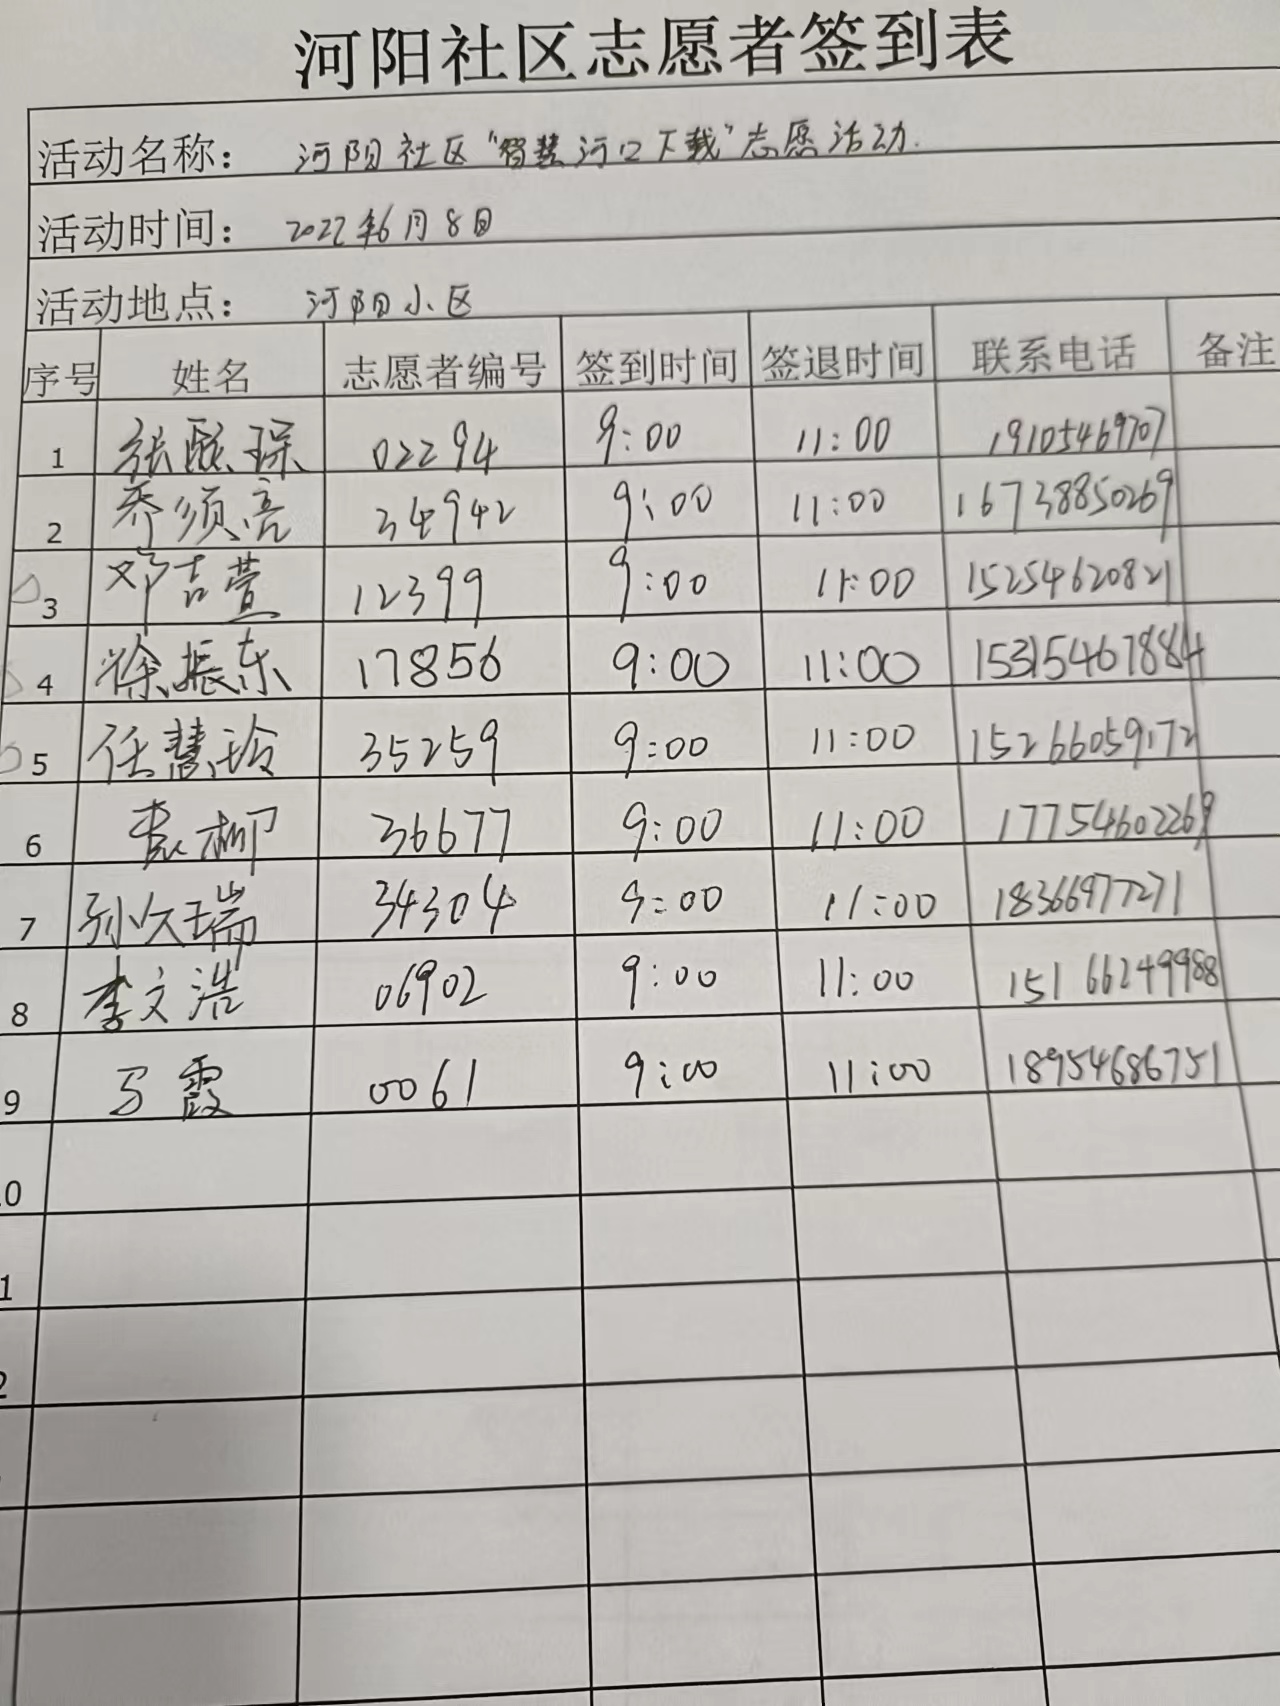 河阳社区志愿者签到表
活动名称： 河阳社区“智慧河口下载”志愿活动.
活动时间： 2022年6月8日
活动地点： 河阳小区
序号 姓名 志愿者编号 签到时间 签退时间 联系电话 备注
1 张 琛 02294 9:00 11:00 19105469707
2 乔须亮 34942 9:00 11:00 16738850269
3 邓吉萱 12399 9:00 11:00 15254620821
4 徐振东 17856 9:00 11:00 15315467884
5 任慧玲 35259 9:00 11:00 15266059172
6 袁柳 36677 9:00 11:00 17754602269
7 孙久瑞 34304 9:00 11:00 18366977271
8 李文浩 06902 9:00 11:00 15166249988
9 马霞 0061 9:00 11:00 18954686751
0
1
2